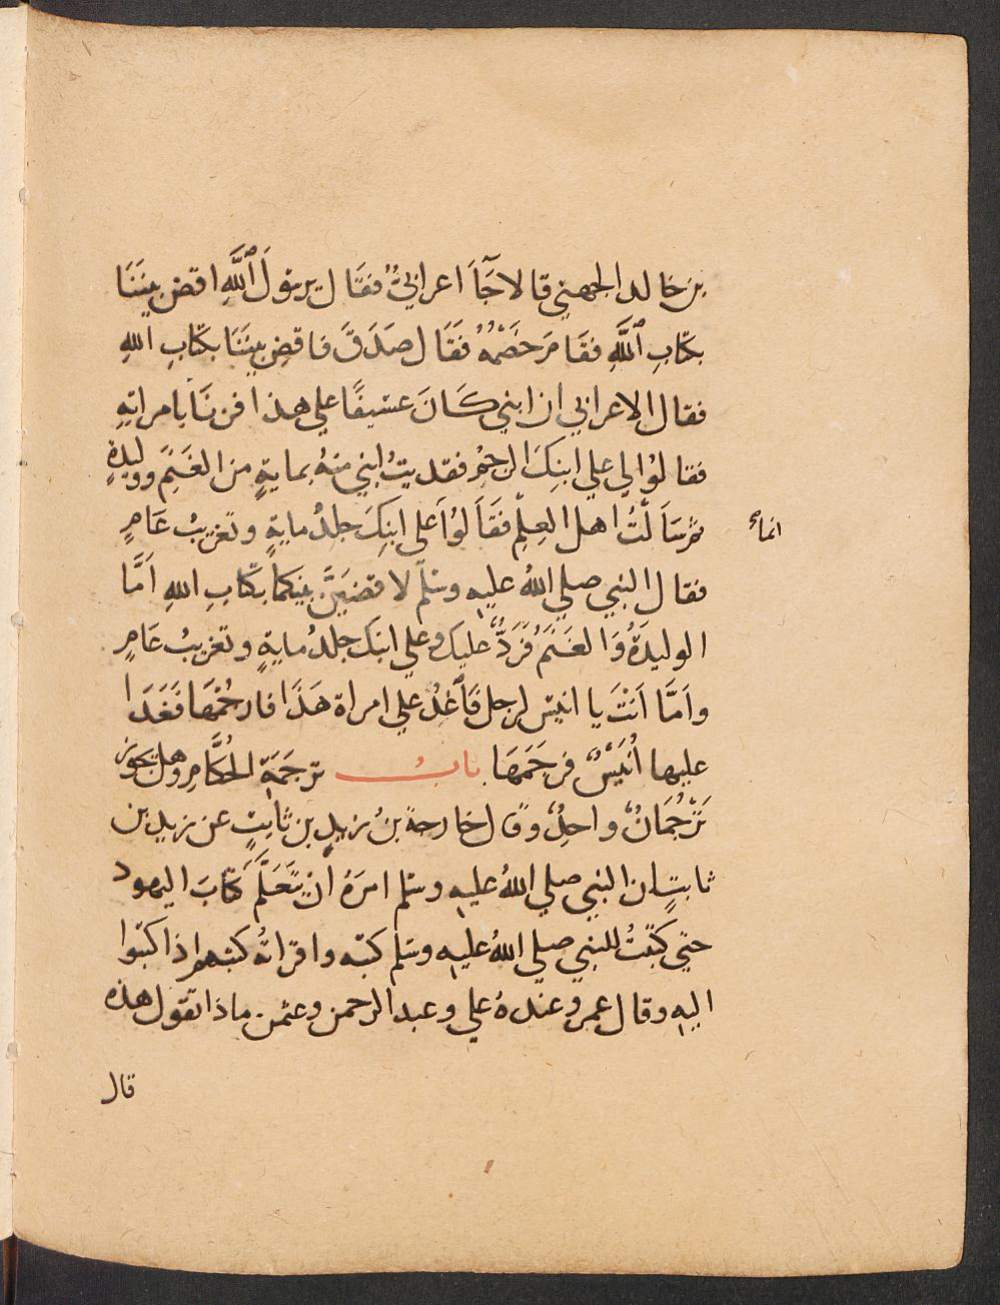 بن خالد الجهني قالا جَآَ اعرابيٌّ فقَال يرسولَ ٱللَّهِ اقض بيننَا
بكتابِ ٱللَّهِ فقَامَ خَصْمُهُ فَقَال صَدَقَ فاقضِ بينَنَا بكتابِ اللهِ
فقال الاعرابي ان ابني كَانَ عسيفًا علي هذا فزنَا بامراتِهِ
فقالوُا لي علي ابنِكَ الرجمُ ففديتُ ابني منهُ بمايةٍ من الغَنَمِ ووليدةٍ
ثم سَالتُ اهل العِلمِ فقَالوُا علي ابنِكَ جلدُ مايةٍ وتغريبُ عَامٍ
انما
فقال النبي صلي اللهُ عليهِ وسلم لاقضيَنَّ بينكما بكتابِ اللهِ اَمَّا
الوليدَةُ وَالغَنَمُ فَرَدٌّ عليك وعلي ابنك جلدُ مايةٍ وتغريبُ عَامٍ
واَمَّا اَنتَ يا انيس لرجل فَاغْدُ علي امراة هَذَا فارجُمْهَا فَغَدَا
عليها اُنَيْسٌ فرجَمَهَا بابُ ترجمَةِ الحُكَّامِ وهل يجوز
تَرْجُمَانٌ واحِدٌ وقال خارجة بنُ زيدِ بن ثابتٍ عن زيد بن
ثابتٍ ان النبي صلي اللهُ عليهِ وسلم امرَهُ ان يَتَعَلَّمَ كتَابَ اليهود
حتي كتَبتُ للنبي صلي اللهُ عليهِ وسلم كتبه واقراتُه كتبهم اذا كتبوا
اليهِ وقال عمر وعندهُ علي وعبد الرحمن وعثمن ماذا تقول هذه
قال